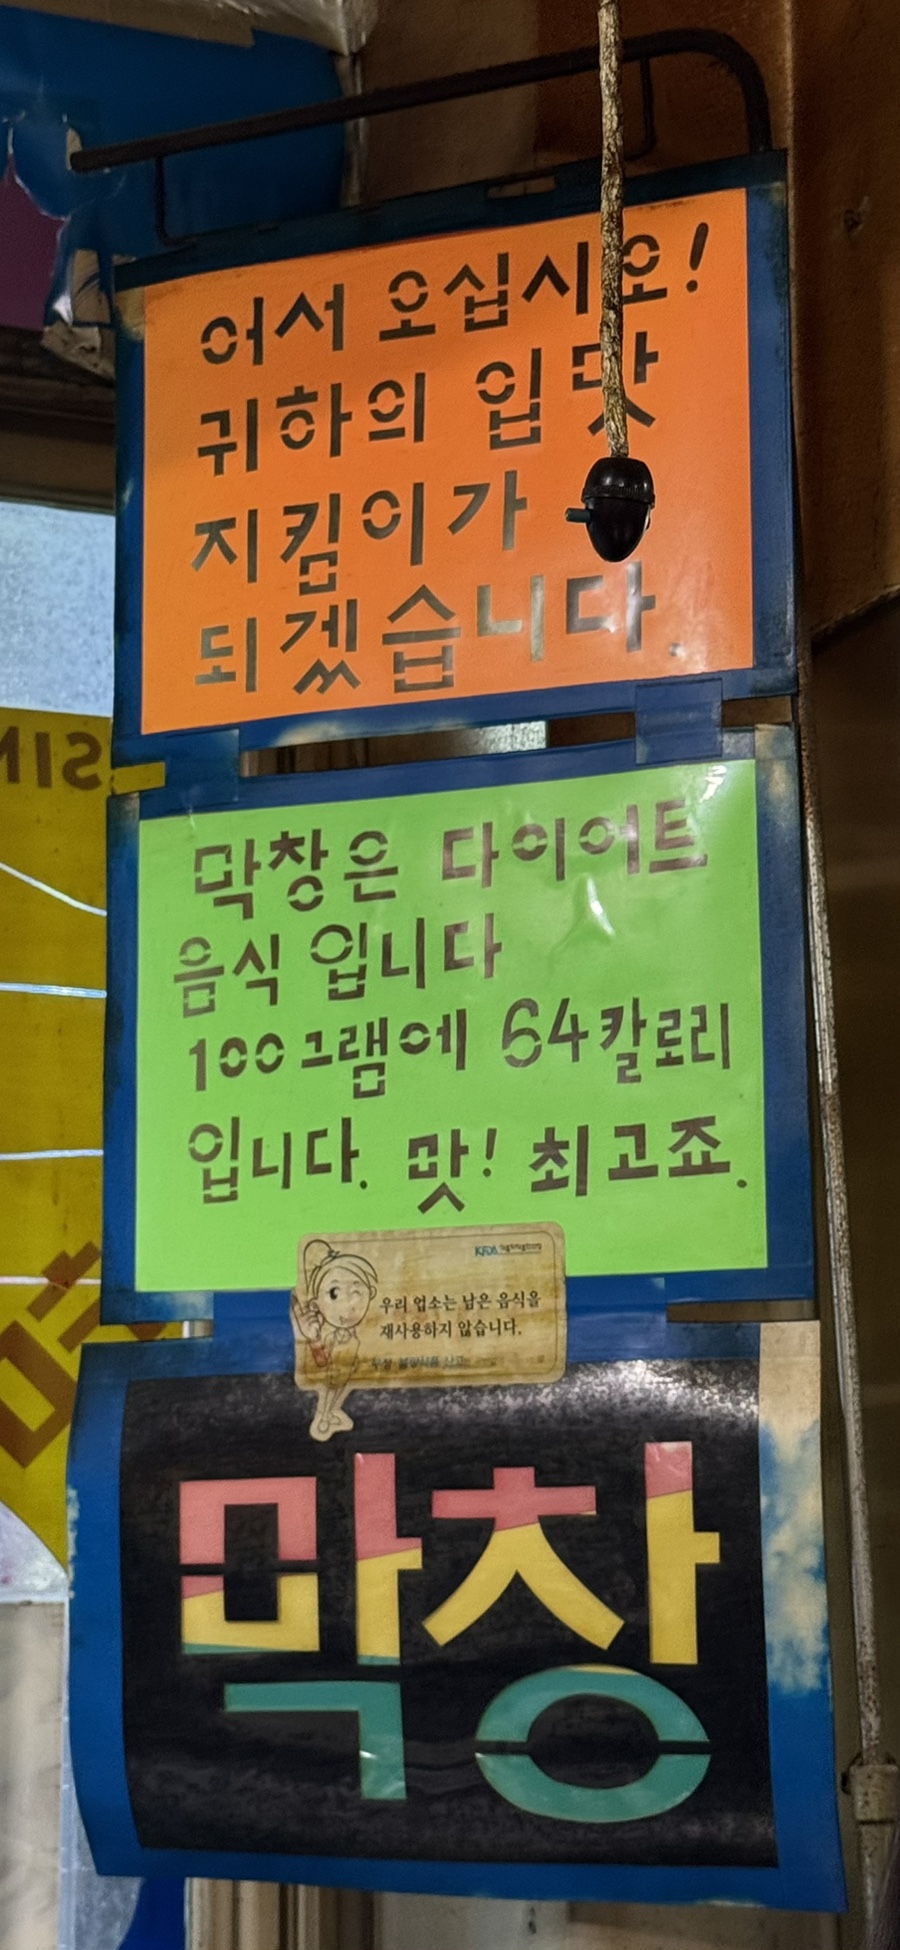 어서 오십시오!
귀하의 입맛
지킴이가
되겠습니다.
막창은 다이어트
음식 입니다
100그램에 64칼로리
입니다. 맛! 최고죠.
우리 업소는 남은 음식을
재사용하지 않습니다.
막창